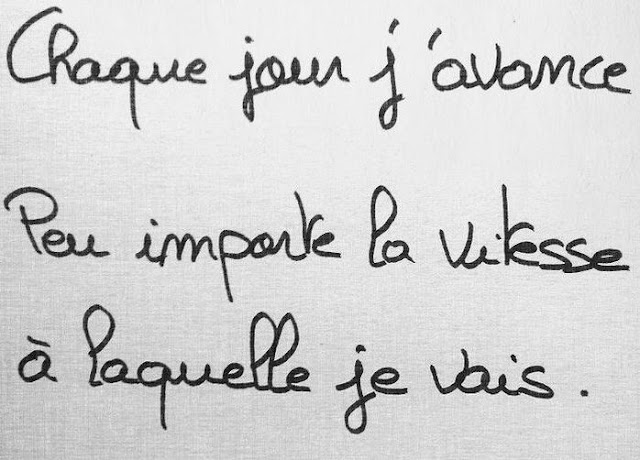 Chaque jour j'avance
Peu importe la vitesse
à laquelle je vais.